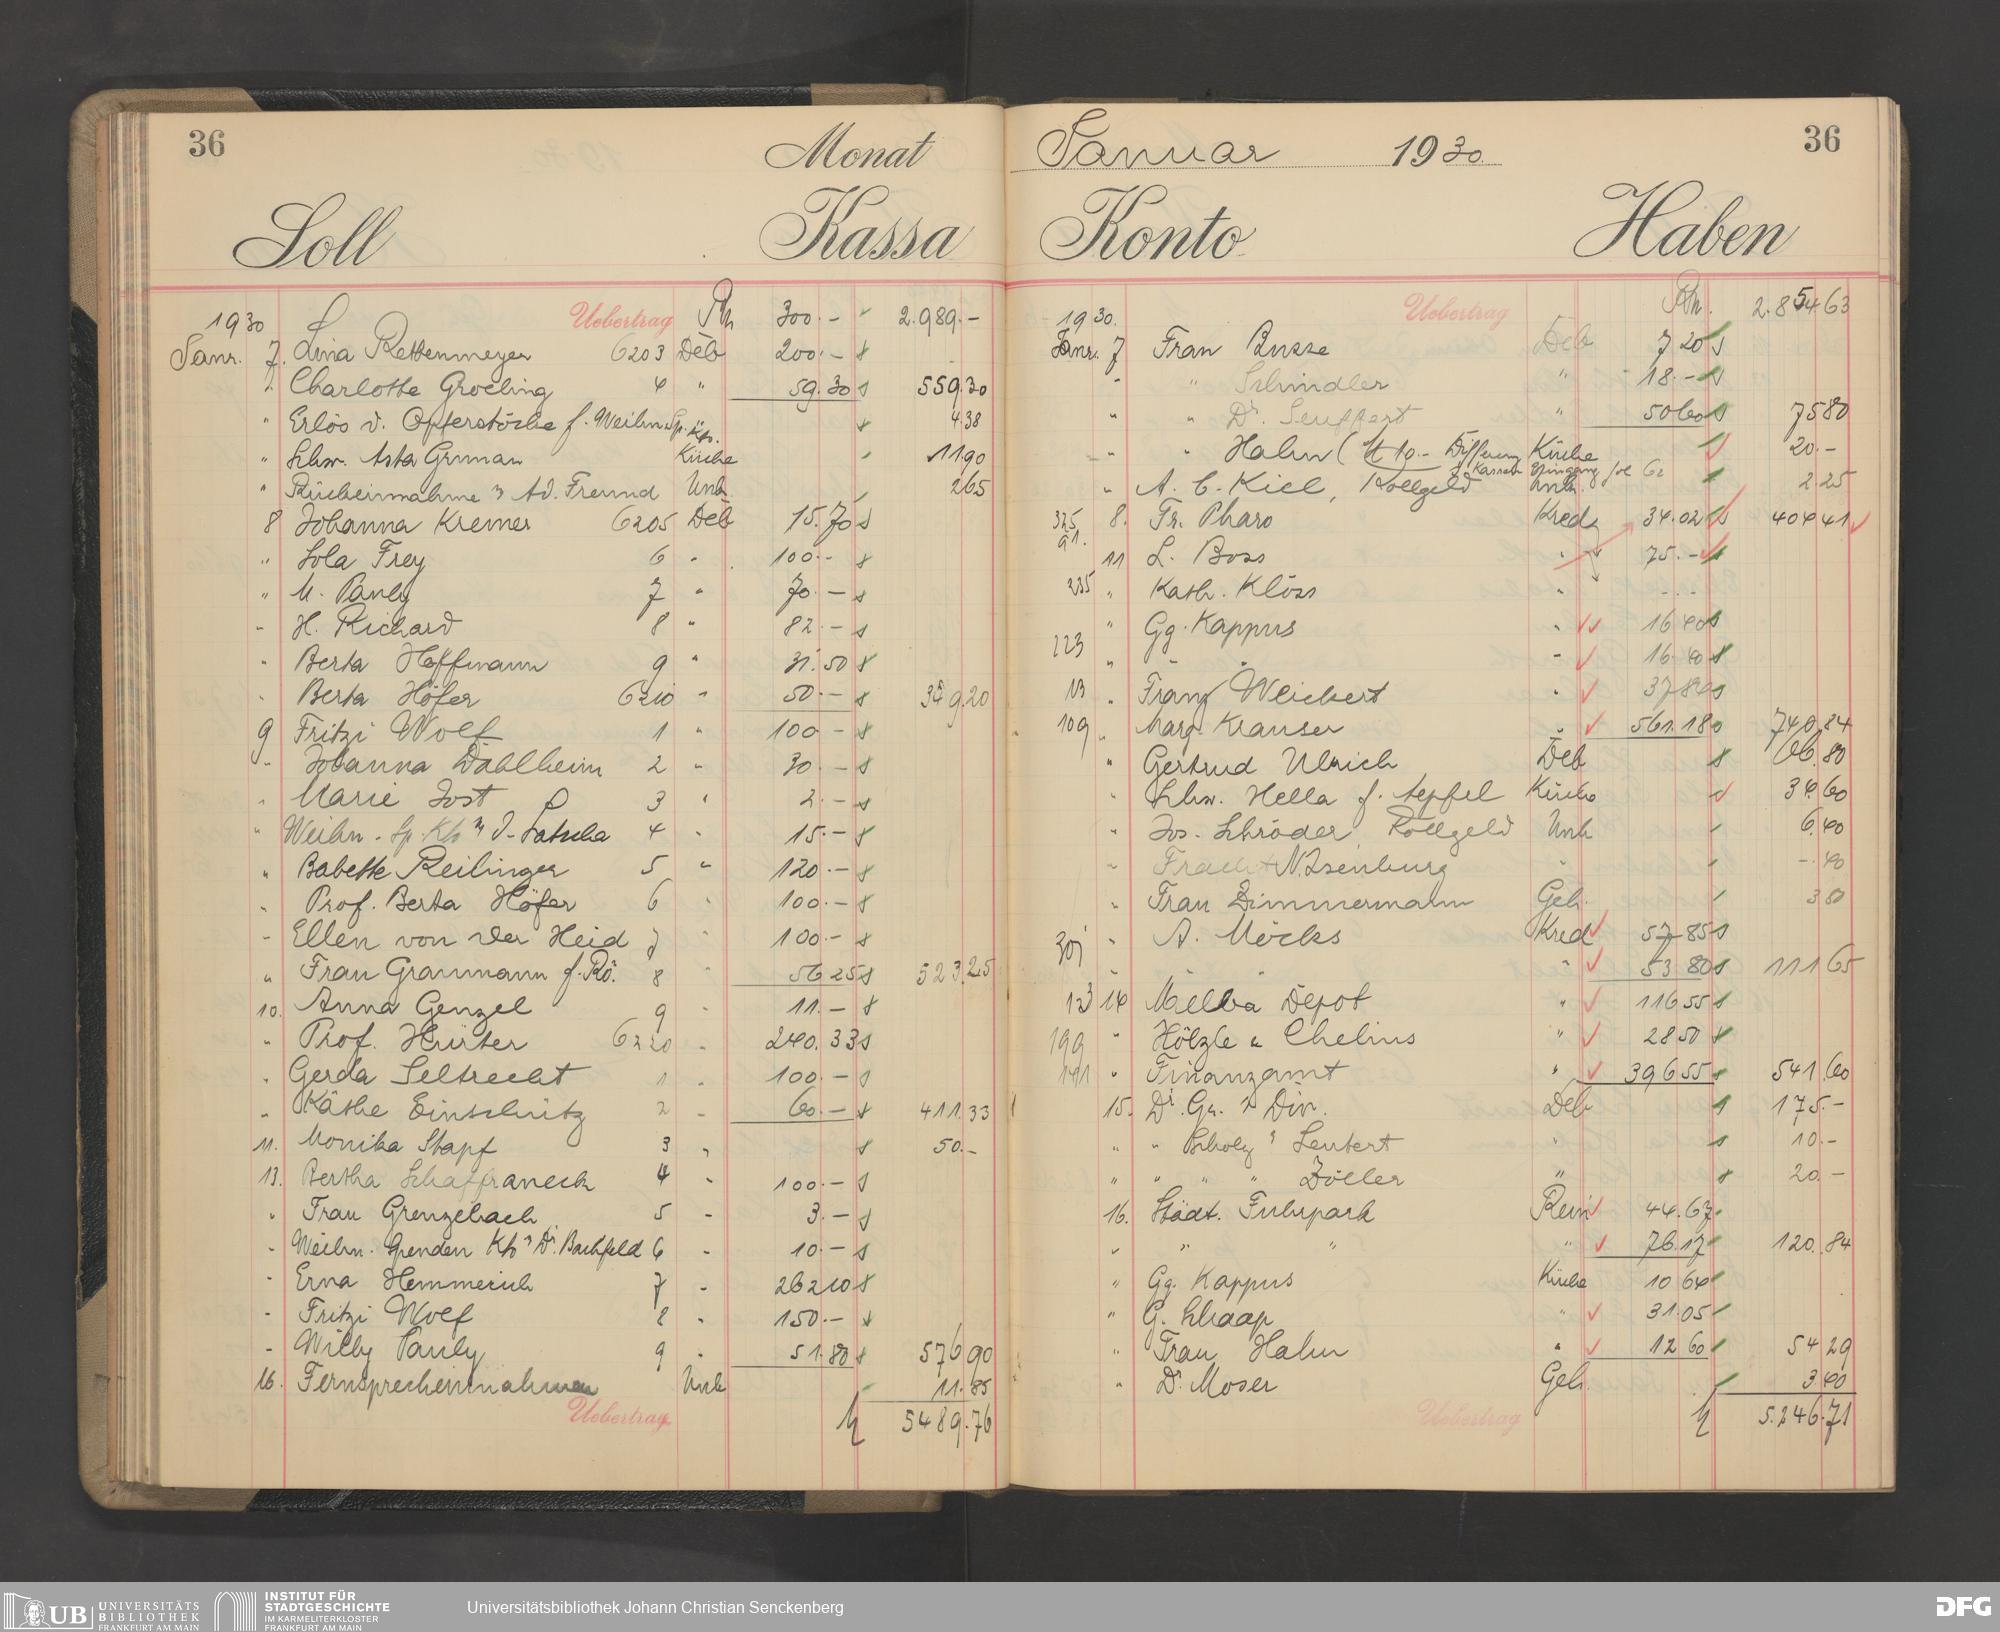 36
Monat
Soll
Kassa
1930 Uebertrag Rm 300.– 2.989.–
Janr. 7. Lina Rettenmeyer 6203 Deb 200.–
" Charlotte Groeling 4 " 59.30 559.30
" Erlös d. Opferstöcke f. Weihn. Sp. Kto. 4.38
" Schw. Asta Gruman Küche 11.90
" Ad. Freund Unk. 2.65
8 Johanna Kremer 6205 Deb 15.70
" Lola Frey 6 " 100.–
" M. Pauly 7 " 70.–
" H. Richard 8 " 82.–
" Berta Hoffmann 9 " 31.50
" Berta Höfer 6210 " 50.– 349.20
9 Fritzi Wolf 1 " 100 –
" Johanna Dahlheim 2 " 30.–
" Marie Jost 3 " 2.–
" Weihn. Sp. Kto 4 " 15.–
" Babette Reilinger 5 " 120.–
" Prof. Berta Höfer 6 " 100.–
" Ellen von der Heid 7 " 100.–
" Frau Graumann f. Rö. 8 " 56.25 523.25
10. Anna Genzel 9 " 11.–
" Prof. Hürter 6220 " 240.33
" Gerda Seltrecht 1 " 100.–
" Käthe Einschütz 2 " 60.– 411.33
11. Monika Stapf 3 " 50.–
13. Bertha Schaffraneck 4 " 100.–
" Frau Grenzebach 5 " 3.–
" Weihn. Spenden Kto Dr. Bachfeld 6 " 10.–
" Erna Hemmerich 7 " 262 10
" Fritzi Wolf 8 " 150.–
" Willy Pauly 9 " 51.80 576.90
16. Fernsprecheinnahmen Unk 11.85
Uebertrag 5489.76
Januar 1930
36
Konto
Haben
1930. Uebertrag Rm. 2.854.63
Janr. 7 Frau Busse Deb 7 20
" " Schindler " 18.–
" " Dr. Seuffert " 50 60 75 80
" " Hahn ( 10.– Differenz Küche 20.–
Kassen Eingang fol 62
" A. C. Kiel, Rollgeld Unk. 2 25
325 8. Fr. Pharo Kred 34.02 404 41
91. 11 L. Boss " 75.–
235 " Kath. Klöss "
" Gg. Kappus " 16 40
223 " " " " 16.40
113 " Franz Weickert " 37 80
109 " Marg. Kranser " 561.18 740.84
" Gertrud Ulrich Deb 66.80
" Schw. Hella f. Aepfel Küche 34.60
" Jos. Schröder, Rollgeld Unk 6.40
" Fracht N. Isenburg " –.40
" Frau Zimmermann Geh. 3 80
301 " A. Möcks Kred 57 85
" " " 53 80 111 65
123 14 Melba Depot " 116 55
199 " Hölzle u Chelius " 28 50
191 " Finanzamt " 396 55 541.60
15. Deb 175.–
" " Scholz Leutert " 10.–
" " " " Zöller " 20.–
16. Städt. Fuhrpark Rein 44.67
" " " " 76.17 120.84
" Gg. Kappus Küche 10 64
" G. Schaap " 31.05
" Frau Hahn " 12 60 54 29
" Dr. Moser Geh. 3.40
Uebertrag 5.246.71
UB UNIVERSITÄTS
BIBLIOTHEK
FRANKFURT AM MAIN
INSTITUT FÜR
STADTGESCHICHTE
IM KARMELITERKLOSTER
FRANKFURT AM MAIN
Universitätsbibliothek Johann Christian Senckenberg
DFG